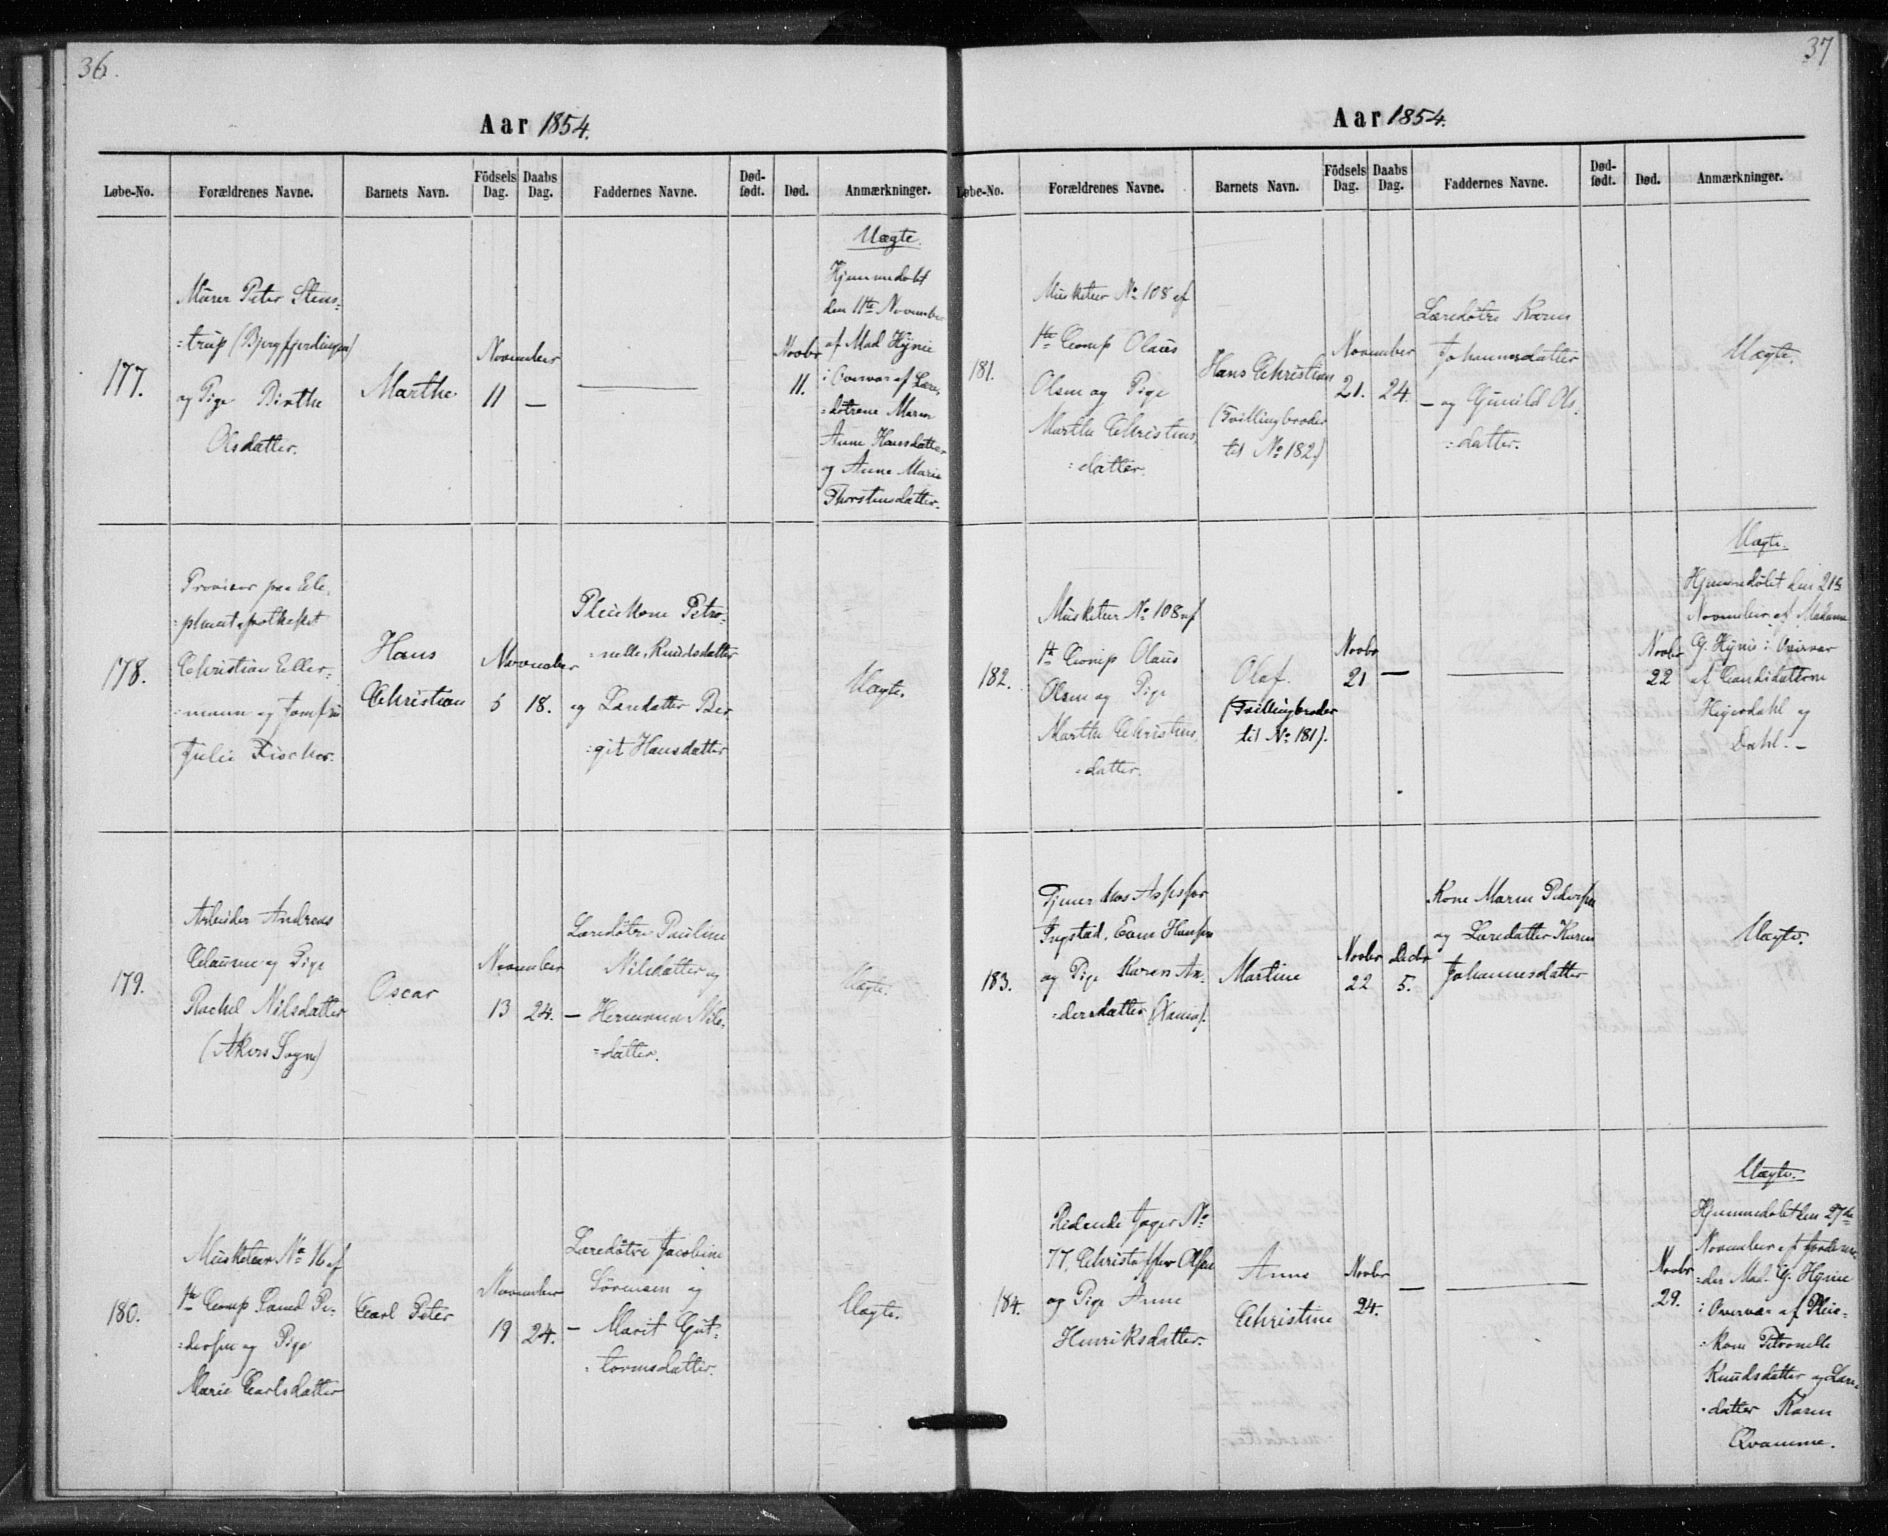 36.
Aar 1854.
Løbe-No. Forældrenes Navne. Barnets Navn. Födsels Dag. Daabs Dag. Faddernes Navne. Død-født. Død. Anmærkninger.
177.
Murer Peter Stens-
=trup (Bjergfjerdingen)
og Pige Birthe
Olsdatter.
Marthe
November
11 —
—
Novbr
11.
Uægte.
Hjemmedøbt
den 11te November
af Mad Hynie
i Overvær af Lære-
=døtrene Maren
Anne Hansdatter
og Anne Marie
Thorstensdatter.
178.
Provisor paa Ele-
=phantapotheket
Christian Eller-
=mann og Jomfru
Julie Fischer.
Hans
Christian
November
5 18.
Pleiekone Petro-
=nelle Knudsdatter
og Læredatter Ber-
=git Hansdatter
Uægte.
179.
Arbeider Andreas
Clausen og Pige
Rachel Nilsdatter
(Akers Sogn)
Oscar
November
13 24.
Læredøtre Pauline
Nilsdatter og
— Hermana Nils-
=datter.
Uægte.
180.
Musketeer No 16 af
1te Comp Samd Pe-
=dersen og Pige
Marie Carlsdatter
Carl Peter
November
19 24.
Læredøtre Jacobine
Sørensen og
— Marit Gut-
=tormsdatter.
Uægte.
37
Aar 1854.
Løbe-No. Forældrenes Navne. Barnets Navn. Födsels Dag. Daabs Dag. Faddernes Navne. Død-født. Død. Anmærkninger.
181.
Musketeer No 108 af
1te Comp Olaus
Olsen og Pige
Marthe Christens
=datter.
Hans Christian
(Tvillingbroder
til No 182.)
November
21. 24.
Læredøtre Karen
Johannesdatter
— og Gunild Ols-
=datter.
Uægte.
182.
Musketeer No 108 af
1te Comp Olaus
Olsen og Pige
Marthe Christens
=datter.
Olaf.
(Tvillingbroder
til No 181).
Novbr
21 —
—
Novbr
22
Uægte.
Hjemmedøbt den 21de
November af Madame
G. Hynie i Overvær
af Candidaterne
Heyerdahl og
Dahl. —
183.
Tjener hos Assessor
Ingstad, Even Hansen
og Pige Karen An-
=dersdatter
Martine
Novbr
22
Decbr
5.
Kone Maren Pedersen
og Læredatter Karen
Johannesdatter
Uægte.
184.
Ridende Jæger No
77, Christoffer Olsen
og Pige Anne
Henriksdatter.
Anne
Christine
Novbr
24. —
—
Novbr
29.
Uægte.
Hjemmedøbt den 27de
November af Jordemo-
=der Mad. G. Hynie
i Overvær af Pleie-
=kone Petronelle
Knudsdatter og Lære-
=datter Karen
Qvamme.